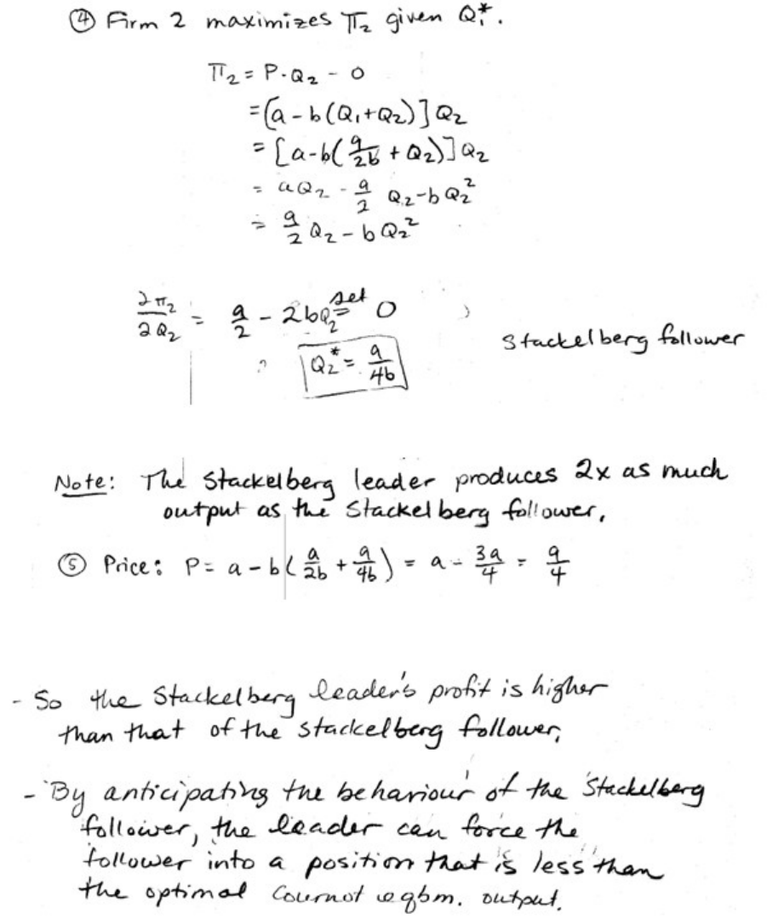 ④ Firm 2 maximizes π₂ given Q₁*.
π₂ = P·Q₂ - 0
= [a - b(Q₁+Q₂)]Q₂
= [a-b(a/2b + Q₂)]Q₂
= aQ₂ - a/2 Q₂-bQ₂²
= a/2 Q₂ - bQ₂²
∂π₂/∂Q₂ = a/2 - 2bQ₂ set = 0
Stackelberg follower
Q₂* = a/4b
Note: The Stackelberg leader produces 2x as much
output as the Stackelberg follower.
⑤ Price: P = a - b(a/2b + a/4b) = a - 3a/4 = a/4
- So the Stackelberg leader's profit is higher
than that of the Stackelberg follower.
- By anticipating the behaviour of the Stackelberg
follower, the leader can force the
follower into a position that is less than
the optimal Cournot eqbm. output.